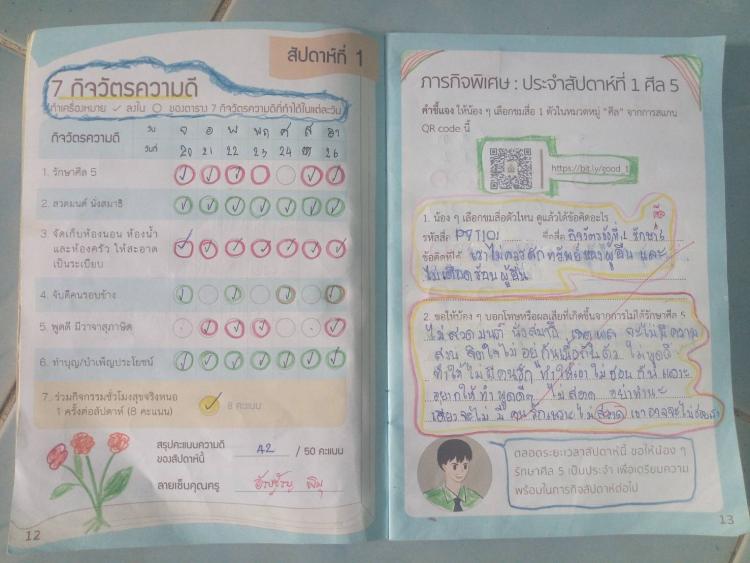 สัปดาห์ที่ 1
7 กิจวัตรความดี
ทำเครื่องหมาย ✓ ลงใน ○ ของตาราง 7 กิจวัตรความดีที่ทำได้ในแต่ละวัน
กิจวัตรความดี วัน จ อ พ พฤ ศ ส อา
วันที่ 20 21 22 23 24 25 26
1. รักษาศีล 5
2. สวดมนต์ นั่งสมาธิ
3. จัดเก็บห้องนอน ห้องน้ำ
และห้องครัว ให้สะอาด
เป็นระเบียบ
4. จับดีคนรอบข้าง
5. พูดดี มีวาจาสุภาษิต
6. ทำบุญ/บำเพ็ญประโยชน์
7. ร่วมกิจกรรมชั่วโมงสุขจริงหนอ
1 ครั้งต่อสัปดาห์ (8 คะแนน) ✓ 8 คะแนน
สรุปคะแนนความดี
ของสัปดาห์นี้ 42 / 50 คะแนน
ลายเซ็นคุณครู
12
ภารกิจพิเศษ : ประจำสัปดาห์ที่ 1 ศีล 5
คำชี้แจง ให้น้อง ๆ เลือกชมสื่อ 1 ตัวในหมวดหมู่ "ศีล" จากการสแกน
QR code นี้
https://bit.ly/good_1
1. น้อง ๆ เลือกชมสื่อตัวไหน ดูแล้วได้ข้อคิดอะไร
รหัสสื่อ ชื่อสื่อ กิจวัตรข้อที่ 1 รักษา
ข้อคิดที่ได้ เราไม่ควรลักทรัพย์ของผู้อื่น และ
ไม่เดือดร้อนผู้อื่น
2. ขอให้น้อง ๆ บอกโทษหรือผลเสียที่เกิดขึ้นจากการไม่ได้รักษาศีล 5
ไม่สวดมนต์ นั่งสมาธิ จะไม่มีความ
สงบ จิตใจไม่ ไม่พูดดี
ทำให้ไม่มีคนรัก ทำให้เขาไม่ชอบ
ไม่สะอาด
ตลอดระยะเวลาสัปดาห์นี้ ขอให้น้อง ๆ
รักษาศีล 5 เป็นประจำ เพื่อเตรียมความ
พร้อมในภารกิจสัปดาห์ต่อไป
13